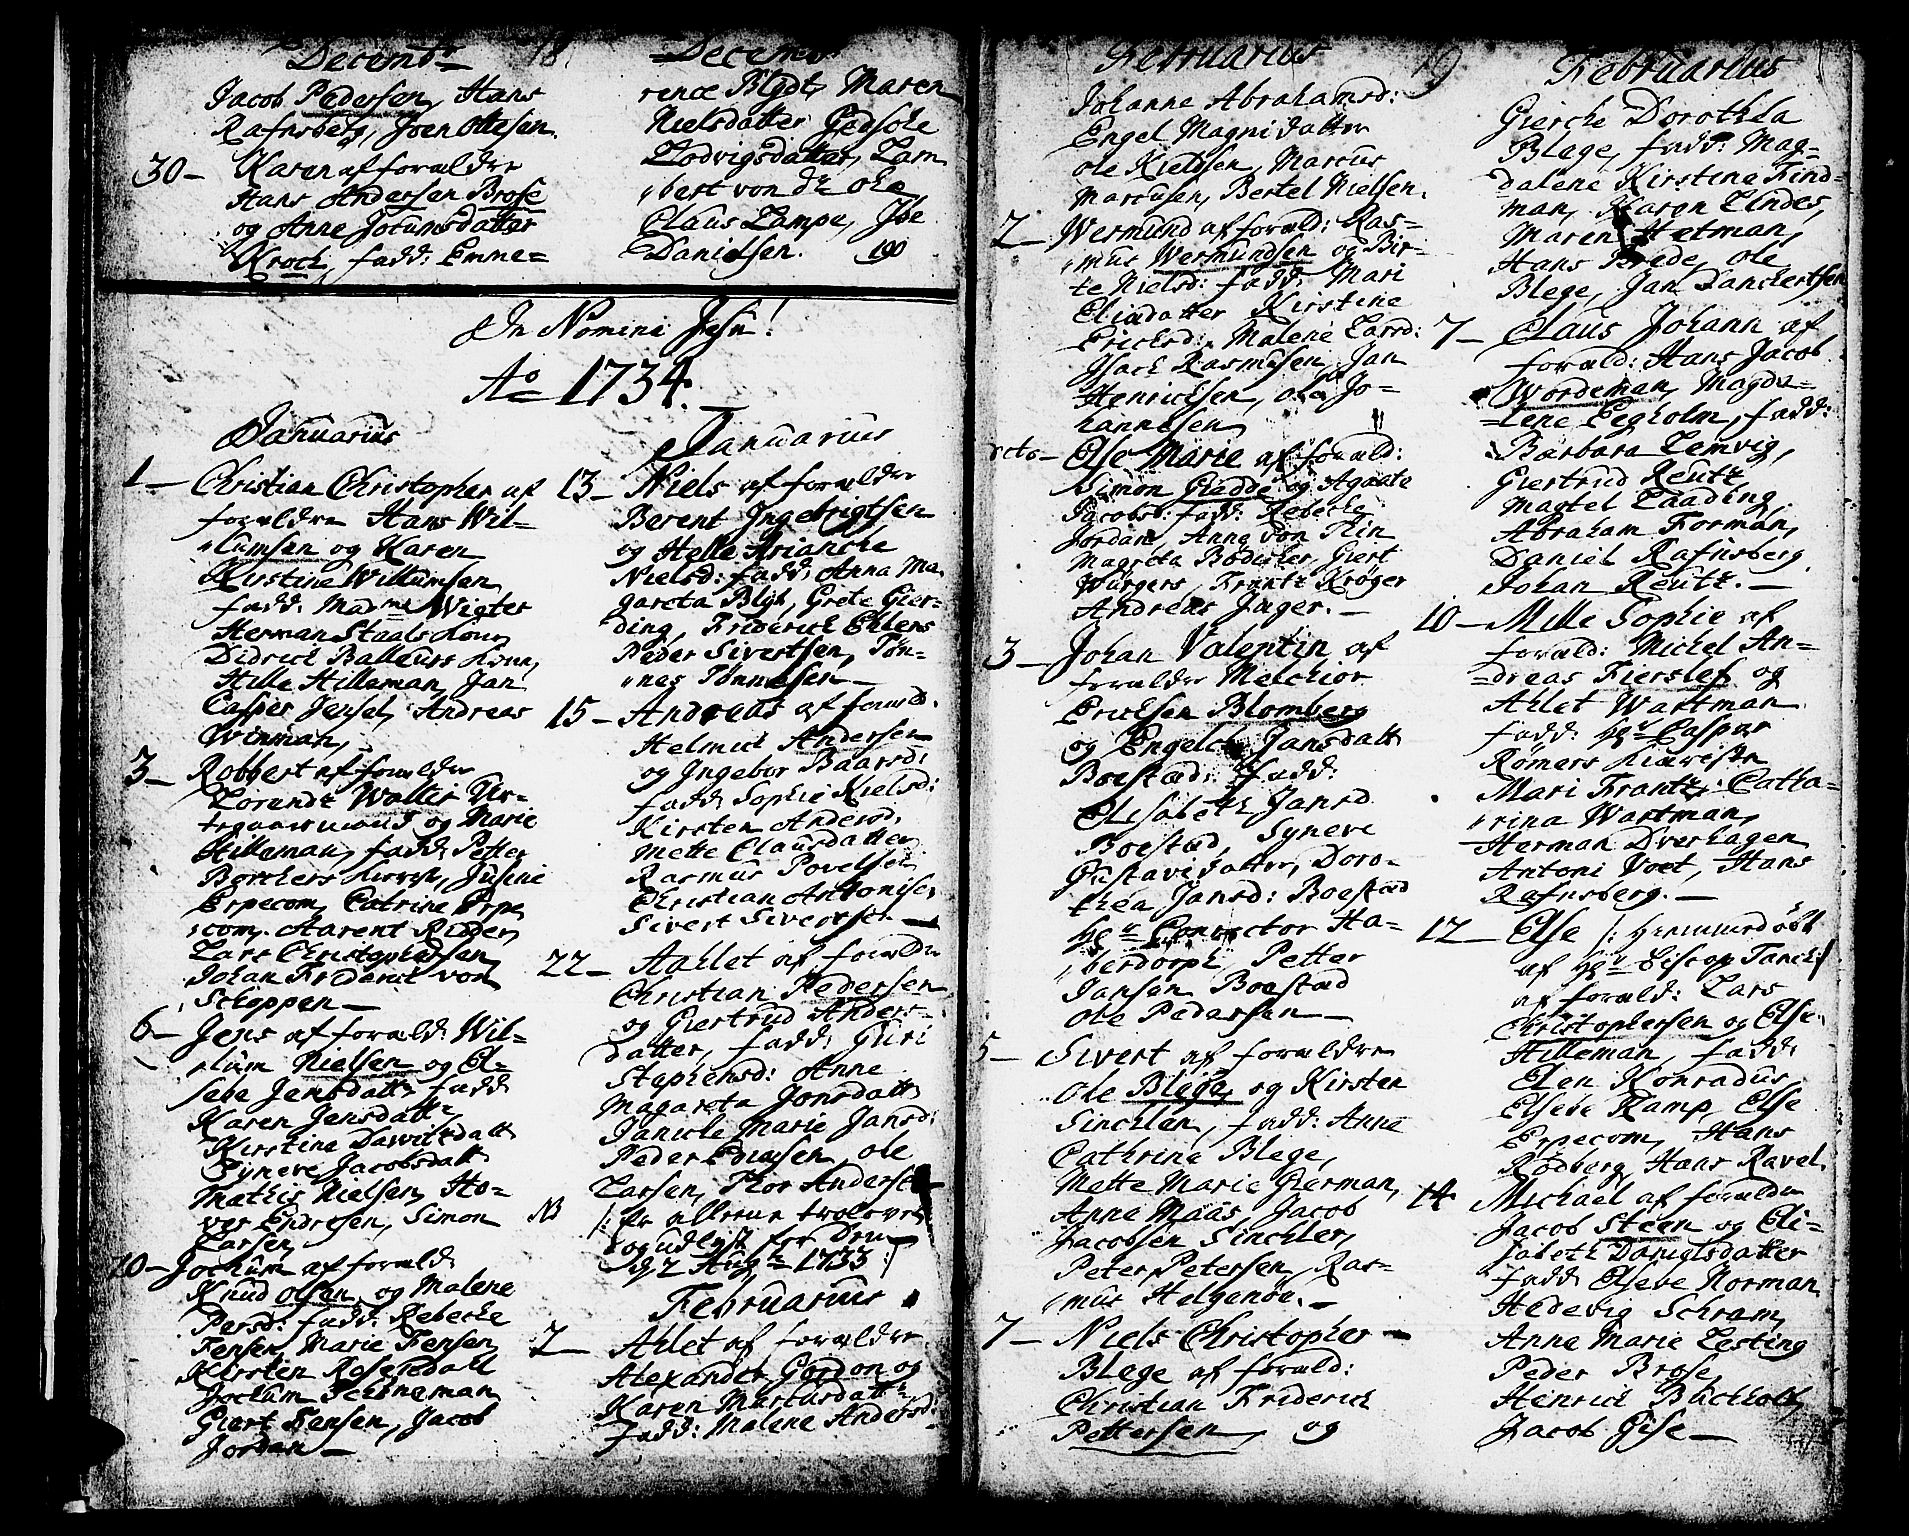 Decembr
Jacob Pedersen, Hans
Rafnsberg, Joen Ottesen.
30 – Karen af forældre
Hans Andersen Brose
og Anne Jocumsdatter
Kroch, fadd: Emme=
18
Decemb
rence Blydt, Maren
Nielsdatter Gedsche
Lodvigsdatter, Lam
bert von de
Claus Lampe, Jbe
Danielsen. 190
In Nomine Jesu!
Ao 1734.
Januarius
1 – Christian Christopher af
forældre Hans Wil=
lumsen og Karen
Kirstine Willumsen
fadd: Madme Wigter
Herman Staals Kone
Didrich Balleurs Kone,
Hille Hilleman, Jan
Casper Jensel, Andreas
Winman,
3 – Robbert af forældre
Lorendz Wallis
og Marie
Hilleman, fadd: Petter
Borchers Kierest, Jusine
Erpecom, Catrine Erpe
com. Aarent Ridder,
Lars Christophersen,
Johan Friderich von
Schoppen –
6 – Jens af foræld: Wil=
lum Nielsen og El=
sebe Jensdattr fadd
Karen Jensdattr
Kirstine Davidsdatt
Syneve Jacobsdatt
Mathis Nielsen, Ho=
ver Endresen, Simon
Larsen
10 – Jochum af foræld:
Knud Olsen og Malene
Persd: fadd: Rebecke
Fensen, Marie Fensen
Kirsten Rosendahl
Jochum Scheneman
Giert Fensen, Jacob
Jordan –
Januarius
13 – Niels af forældre
Berent Ingebrigtsen
og Helle Arianche
Nielsd: fadd: Anna Ma
gareta Blyt, Grete Gier=
ding, Friderich Ehlers
Peder Sivertsen, Tøn=
nes Tønnesen –
15 – Andreas af foræld.
Helmich Andersen
og Ingebor Baarsd:
fadd: Sophie Nielsd:
Kirsten Andersd,
Mette Clausdatter,
Rasmus Povelsen
Christian Anthonisen
Sivert Sivertsen –
22 – Aahlet af forældre
Christian Pedersen
og Giertrud Anders=
datter, fadd: Guri
Stephensd: Anne
Magareta Jonsdatt
Janiche Marie Jansd:
Peder Edissen, Ole
Larsen, Thor Anderse
NB /: Er allene trolovet
og udlyst for Dom
d 2 Aug 1733 :/
Februarius
2 – Ahlet af forældre
Alexander Gordon og
Karen Marcusdattr
fadd: Malene Andersd:
Februarius
Johanne Abrahamsd:
Engel Magnidatter
Ole Kieldsen, Marcus
Marcusen, Bertel Nielsen.
2 – Wermund af foræld: Ras=
mus Wermundsen og Bir=
te Nielsd: fadd: Mari
Elisdatter Kirstine
Ericksd:, Malene Larsd:
Isach Rasmusen, Jan
Henrichsen, Ole Jo=
hannesen
dito – Else Marie af foræld:
Simon Giedde og Agaate
Jacobsd: fadd: Rebecke
Jordan, Anna von Rin
Magreta Bødicker, Giert
Würgers, Frantz Krøger
Andreas Jager. –
3 – Johan Valentin af
forældre Melchior
Ericksen Blomberg
og Engelch Jansdatt
Boestad: fadd:
Elisabeth Jansd
Boestad, Syneve
Gustavidatter, Doro=
thea Jansd: Boestad
Hr Conrector Ha=
berdorph, Petter
Jansen Boestad
Ole Pedersen –
5 – Sivert af forældre
Ole Blege, og Kirsten
Sinchlen, fadd: Anne
Cathrine Blege,
Mette Marie Gierman,
Anne Maas, Jacob
Jacobsen Sinchler,
Peter Petersen, Ras=
mus Helgenøe. –
7 – Niels Christopher –
Blege af foræld:
Christian Friderich
Pettersen, og
19
Februarius
Gierche Dorothea
Blege, fadd: Mag=
dalene Kirstine Find=
man, Karen Lindes,
Maren Hetman,
Hans Brede, Ole
Blege, Jan Danchertsen
7 – Claus Johann af
foræld: Hans Jacob
Wordeman, Magda=
lene Legholm, fadd:
Barbara Lemvig,
Giertrud Reutz
Magtel Laading,
Abraham Forman,
Daniel Rafnsberg
Johan Reutz. –
10 – Mille Sophie af
foræld: Michel An=
dreas Fierslef og
Ahlet Wartman
fadd: Hr Caspar
Rømers Kiæreste
Mari Frantz, Catha=
rina Wartman,
Herman Dverhagen
Antoni Voet, Hans
Rafnsberg. –
12 – Else /: Hiemmedøbt
af Hr Biscop Tanch :/
af foræld: Lars
Christophersen og Else
Hilleman, fadd:
Elen Konradus,
Elsebe Kamp, Else
Erpecom, Hans
Rødberg, Hans Ravel.
14 Michael af forældre
Jacob Steen og Eli=
sabeth Danielsdatter
fadd: Elsebe Norman
Hedevig Schram,
Anne Marie Lesting
Peder Brose,
Henrich Bucholt,
Jacob Gise –